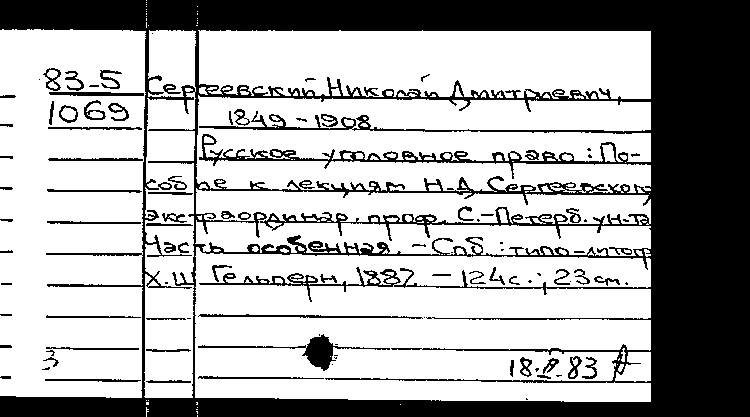 83-5 Сергеевский, Николай Дмитриевич,
1069 1849-1908.
Русское уголовное право: По-
собие к лекциям Н.Д. Сергеевского
экстраординар. проф. С.-Петерб. ун-та
Часть особенная. - Спб.: типо-литогр
Х.Ш Гельперн, 1887. - 124с.; 23 см.
3 18.II.83